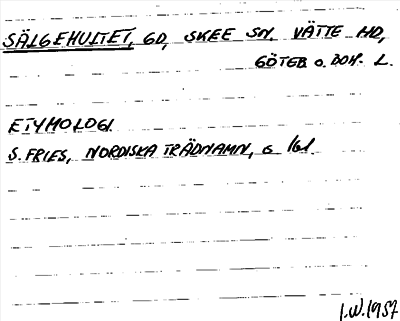 SÄLGEHULTET, GD, SKEE SN, VÄTTE HD,
GÖTEB O. BOH. L.
ETYMOLOGI
S. FRIES, NORDISKA TRÄDNAMN, G 161.
I.W. 1957